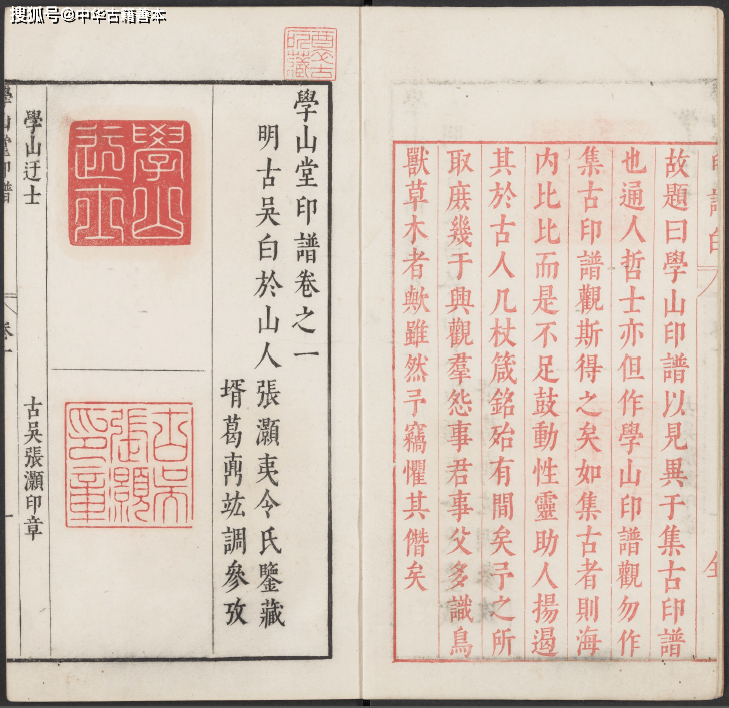 搜狐号@中华古籍善本
故題曰學山印譜以見異于集古印譜
也通人哲士亦但作學山印譜觀勿作
集古印譜觀斯得之矣如集古者則海
内比比而是不足鼓動性靈助人揚遏
其於古人几杖箴銘殆有間矣予之所
取庻幾于興觀羣怨事君事父多識鳥
獸草木者歟雖然予竊懼其僭矣
學山堂印譜卷之一
明古吳白於山人張灝夷令氏鑒藏
壻葛竑調參攷
學山迂士
古吳張灝印章
學山迂士
古吳張灝印章
學山堂印譜
卷一
一